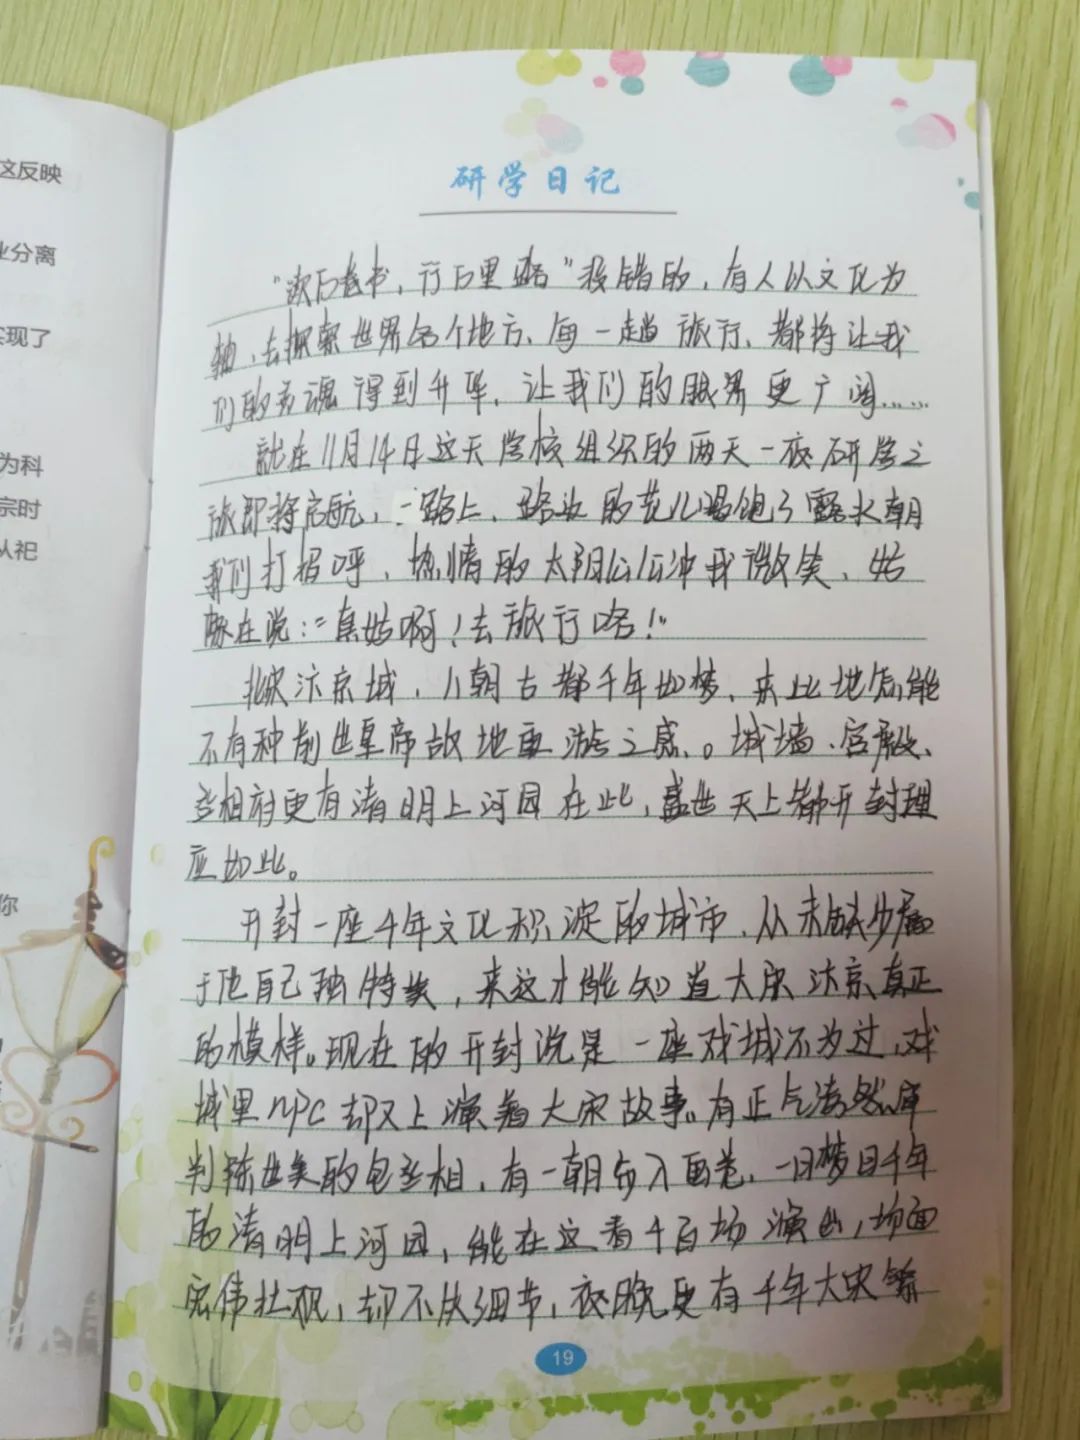 这反映
业分离
实现了
为科
宗时
从祀
你
研学日记
“读万卷书，行万里路”没错的，有人以文化为
轴，去探索世界各个地方，每一趟旅行，都将让我
们的灵魂得到升华，让我们的眼界更广阔……
就在11月14日这天学校组织的两天一夜研学之
旅即将启航，一路上，路边的花儿喝饱了露水朝
我们打招呼，热情的太阳公公冲我微笑，好
像在说：“真好啊！去旅行咯！”
北宋汴京城，八朝古都千年如梦，来此地怎能
不有种前世皇帝故地重游之感。城墙、宫殿、
丞相府更有清明上河园在此，盛世天上都开封理
应如此。
开封一座千年文化积淀的城市，从未缺少属
于他自己独特美，来这才能知道大宋汴京真正
的模样。现在的开封说是一座戏城不为过，戏
城里NPC却又上演着大宋故事。有正气凛然审
判陈世美的包丞相，有一朝步入画卷，一日梦回千年
的清明上河园，能在这看千百场演出，场面
宏伟壮观，却不失细节，夜晚更有千年大宋
19